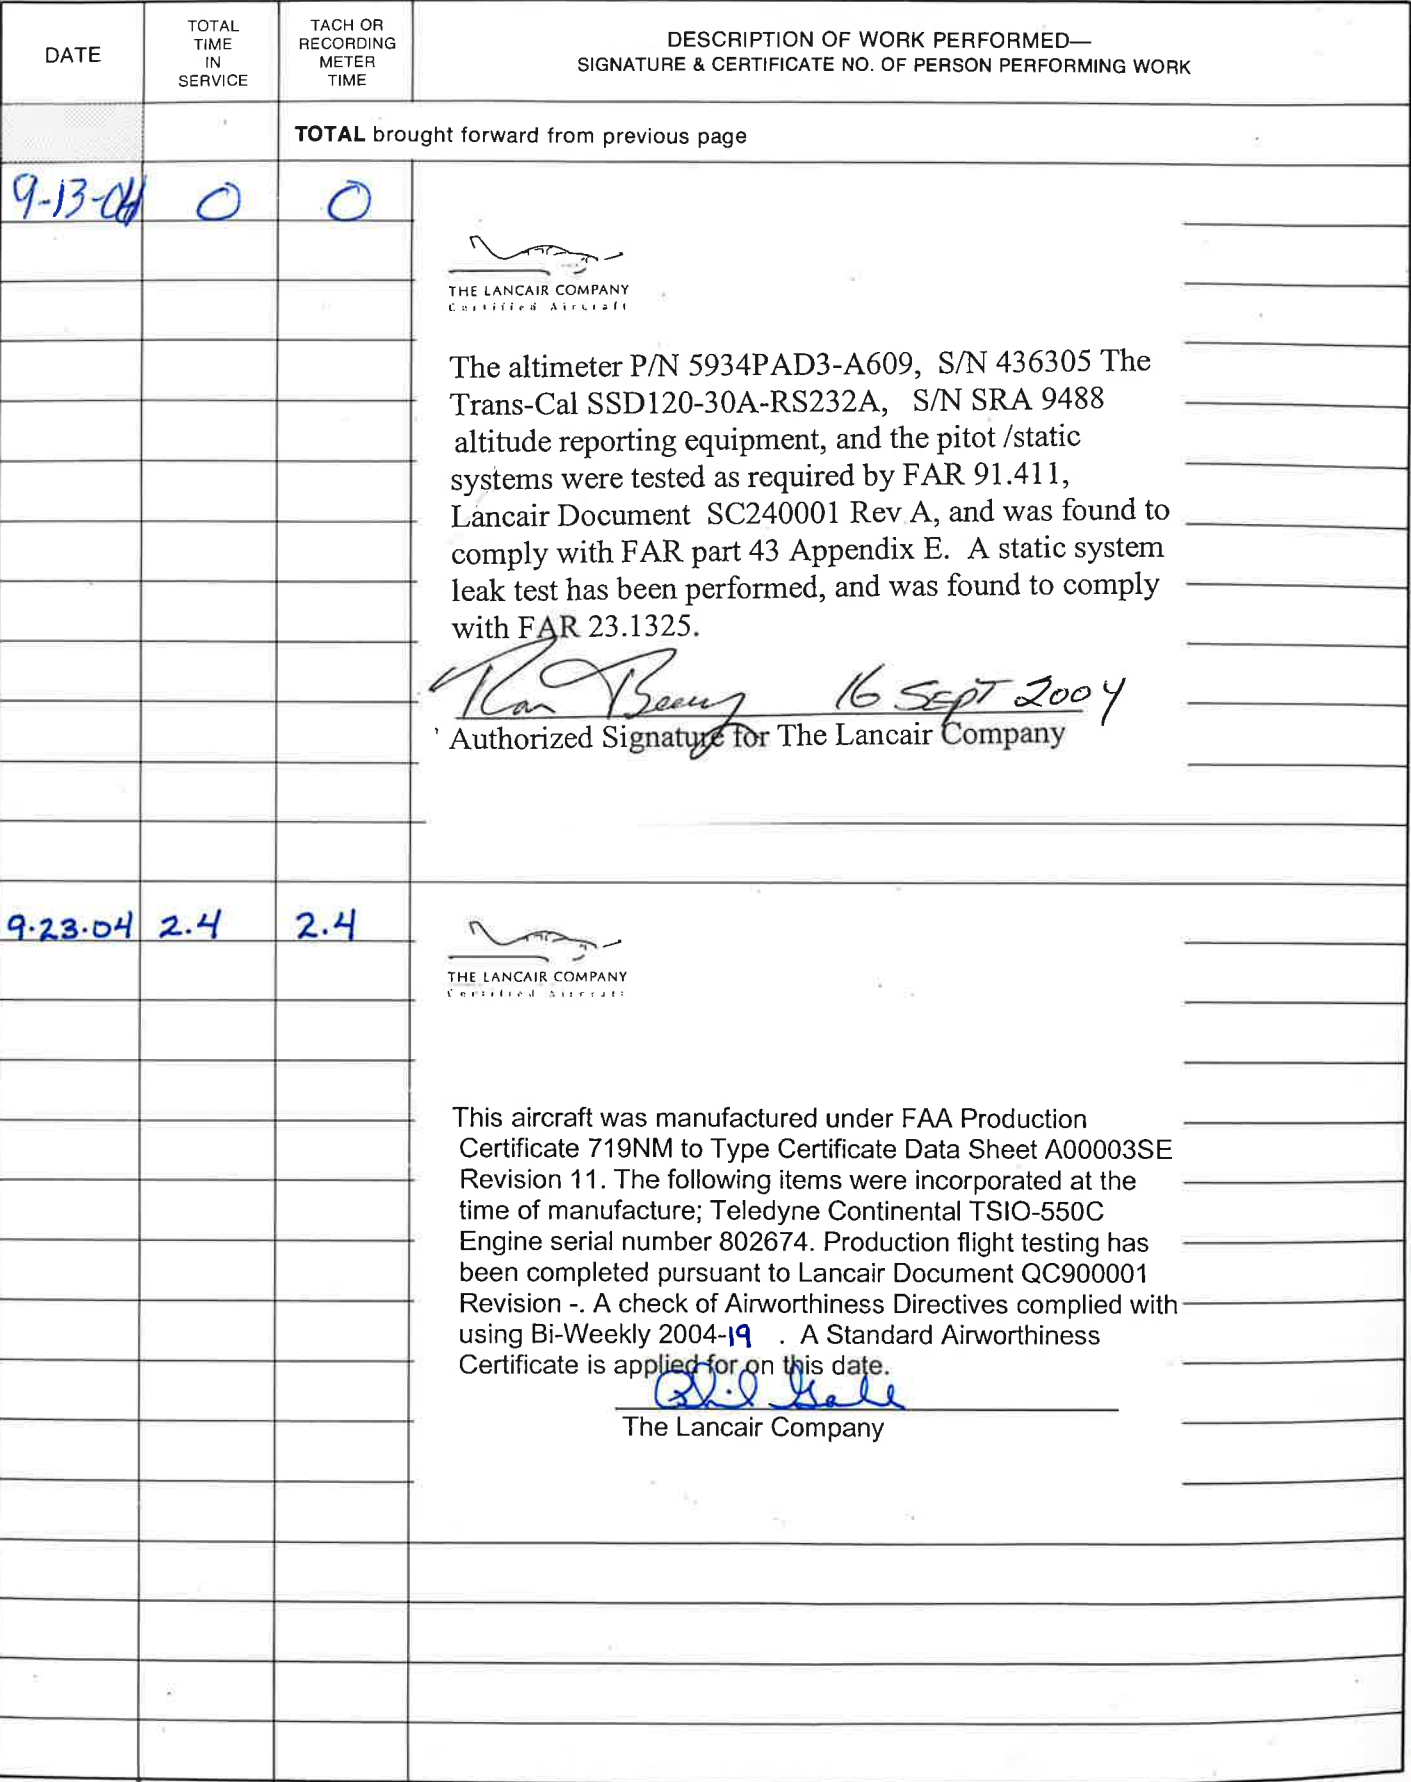 DATE
TOTAL
TIME
IN
SERVICE
TACH OR
RECORDING
METER
TIME
DESCRIPTION OF WORK PERFORMED—
SIGNATURE & CERTIFICATE NO. OF PERSON PERFORMING WORK
TOTAL brought forward from previous page
9-13-04 0 0
THE LANCAIR COMPANY
Certified Aircraft
The altimeter P/N 5934PAD3-A609, S/N 436305 The
Trans-Cal SSD120-30A-RS232A, S/N SRA 9488
altitude reporting equipment, and the pitot /static
systems were tested as required by FAR 91.411,
Lancair Document SC240001 Rev A, and was found to
comply with FAR part 43 Appendix E. A static system
leak test has been performed, and was found to comply
with FAR 23.1325.
16 SEPT 2004
Authorized Signature for The Lancair Company
9.23.04 2.4 2.4
THE LANCAIR COMPANY
Certified Aircraft
This aircraft was manufactured under FAA Production
Certificate 719NM to Type Certificate Data Sheet A00003SE
Revision 11. The following items were incorporated at the
time of manufacture; Teledyne Continental TSIO-550C
Engine serial number 802674. Production flight testing has
been completed pursuant to Lancair Document QC900001
Revision -. A check of Airworthiness Directives complied with
using Bi-Weekly 2004-19 . A Standard Airworthiness
Certificate is applied for on this date.
The Lancair Company